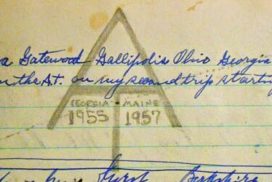 a Gatewood Gallipolis Ohio Georgia
on the A.T. on my second trip starting
GEORGIA - MAINE
1955 1957